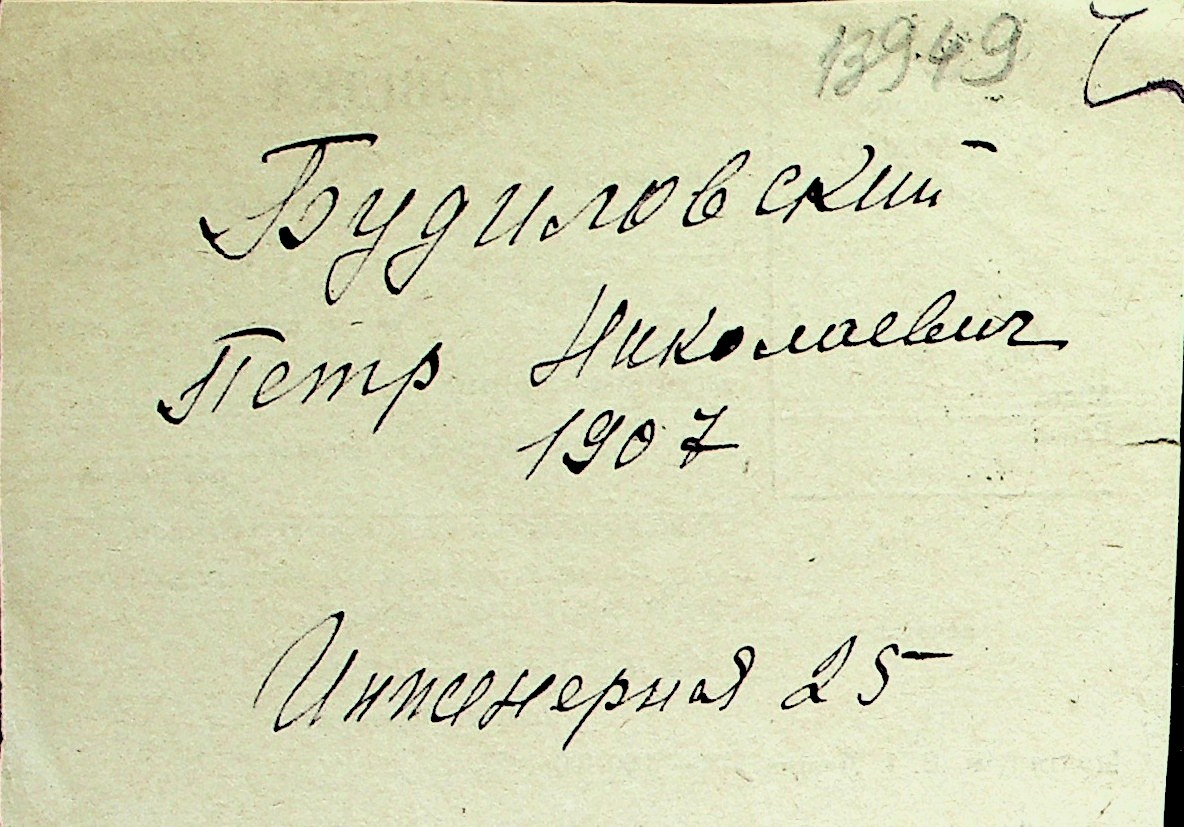 13949
Будиловский
Петр Николаевич
1907
Инженерная 25